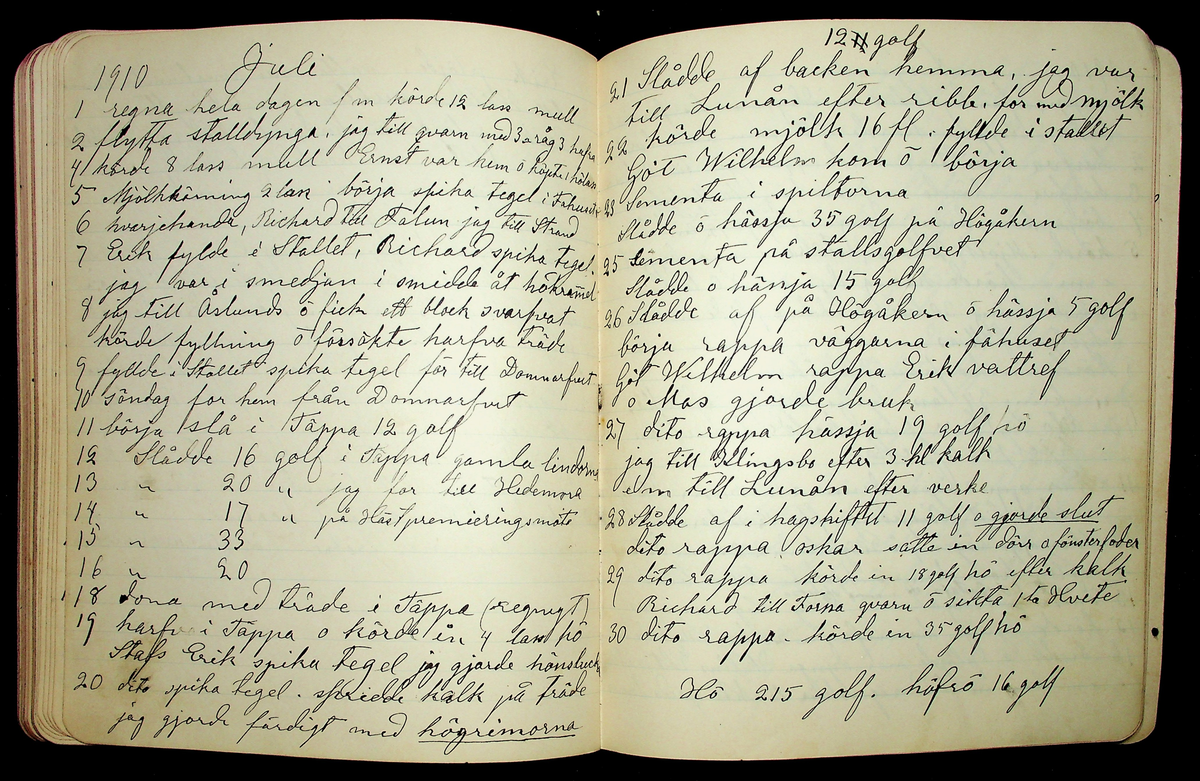 1910 Juli
1 regna hela dagen f m körde 12 lass mull
2 flytta stalldynga. jag till qvarn med 3 a råg 3 hafra
4 körde 8 lass mull Ernst var hem ō köpte 1 hölass
5 Mjölkkörning 2 lass börja spika tegel i Fähuset
6 hvarjehanda, Richard till Falun jag till Strand
7 Erik fylde i Stallet, Richard spika tegel.
jag var i smedjan i smidde åt
8 jag till Åslunds ō fick ett block svarfvat
körde fyllning ō försökte harfva träde
9 fyllde i Stallet spika tegel för till Domnarfvet
10 söndag for hem från Domnarfvet
11 börja slå i Täppa 12 golf
12 Slådde 16 golf i Täppa gamla lindorna
13 " 20 " jag for till Hedemora
14 " 17 " på Hästpremieringsmöte
15 " 33
16 " 20
18 dona med träde i Täppa (regnigt)
19 harfva i Täppa o körde in 4 lass hö
Stafs Erik spika tegel jag gjorde
20 dito spika tegel. spredde kalk på träde
jag gjorde färdigt med högrimorna
12 golf
21 Slådde af backen hemma, jag var
till Lunån efter ribb. for med mjölk
22 körde mjölk 16 fl. fyllde i stallet
Göt Wilhelm kom ō börja
23 Sementa i spiltorna
Slådde ō hässja 35 golf på Högåkern
25 Sementa på stallsgolfvet
Slådde o hässja 15 golf
26 Slådde af på Högåkern ō hässja 5 golf
börja rappa väggarna i fähuset
Göt Wilhelm rappa Erik
ō Mas gjorde bruk
27 dito rappa hässja 19 golf hö
jag till Klingsbo efter 3 hl kalk
e m till Lunån efter verke
28 Slådde af i hagskiftet 11 golf o gjorde slut
dito rappa Oskar satte in dörr o fönsterfoder
29 dito rappa körde in 18 golf hö efter kalk
Richard till Torna qvarn ō sikta 1 ta Hvete
30 dito rappa. körde in 35 golf hö
Hö 215 golf. höfrö 16 golf